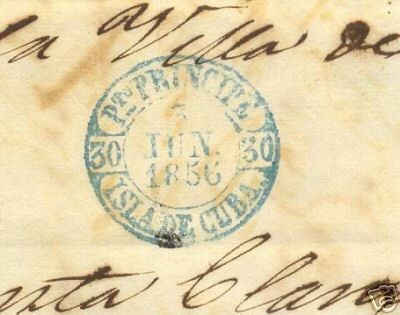 la Villa de
Pto PRINCIPE
5
JUN.
1856
30 30
ISLA DE CUBA.
Clara